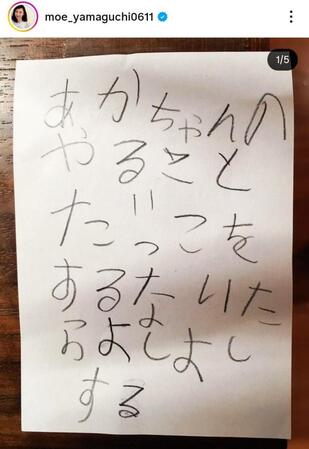 moe_yamaguchi0611
1/5
あかちゃんの
やること
だっこを
するないた
らよしよし
する